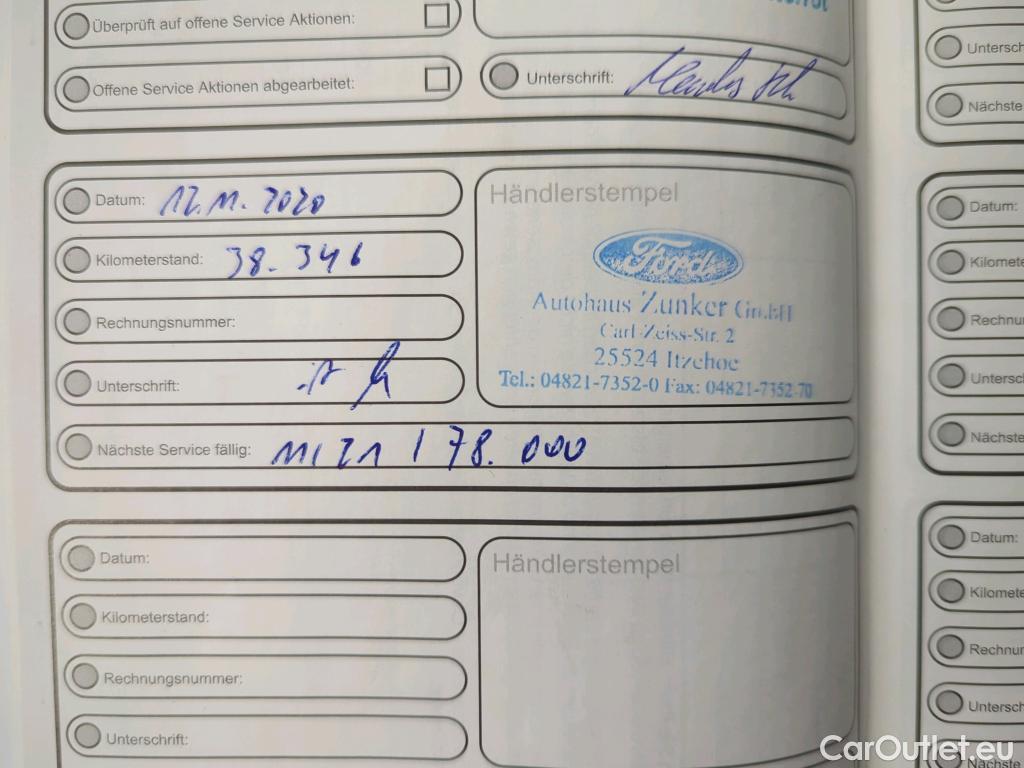 Überprüft auf offene Service Aktionen:
Offene Service Aktionen abgearbeitet:
Unterschrift:
Datum: 12.11.2020
Händlerstempel
Kilometerstand: 38.346
Ford
Rechnungsnummer:
Autohaus Zunker GmbH
Carl-Zeiss-Str. 2
25524 Itzehoe
Unterschrift:
Tel.: 04821-7352-0 Fax: 04821-7352-70
Nächste Service fällig: 11/21 / 78.000
Datum:
Händlerstempel
Kilometerstand:
Rechnungsnummer:
Unterschrift:
Untersch
Nächste
Datum:
Kilomete
Rechnu
Untersch
Nächste
Datum:
Kilomete
Rechnur
Untersch
Nächste
CarOutlet.eu